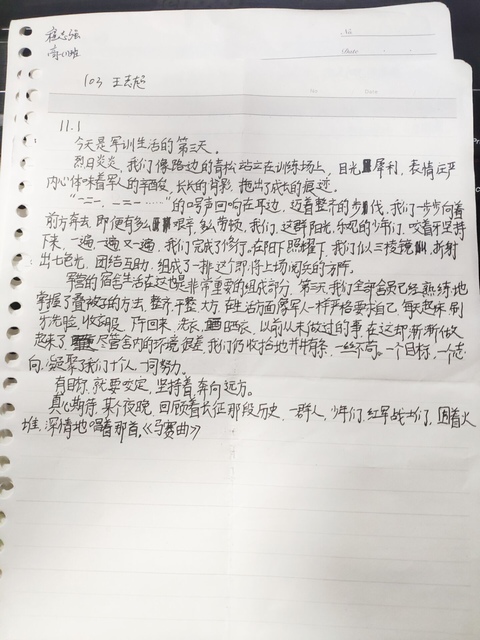 程志强
高训班
No
Date
No Date
103 王志超
11.1
今天是军训生活的第三天。
烈日炎炎，我们像路边的青松站立在训练场上，目光犀利，表情庄严
内心体味着军人的辛酸，长长的背影，拖出了成长的痕迹。
“一二一，一二一……”的口号声回响在耳边，迈着整齐的步伐，我们一步步向着
前方奔去，即便有多么艰辛，多么劳顿，我们，这群阳光，的少年们，咬着牙坚持
下来，一遍，一遍又一遍，我们完成了修行。在阳下照耀下，我们似三棱镜，折射
出七色光，团结互助，组成了一排这个即将上场阅兵的方阵。
军营的宿舍生活在这也是非常重要的组成部分，第三天，我们全部舍员已经熟练地
掌握了叠被子的方法，整齐，平整，大方，在生活方面像军人一样严格要求自己，每天起床，刷
牙洗脸，收衣服，下午回来，洗衣，晒衣，以前从未做过的事，在这却渐渐做
起来了，尽管舍内的环境很差，我们仍收拾地井井有条，一丝不苟。一个目标，一个志
向，凝聚了我们十个人，一同努力。
有目标，就要咬定，坚持着，奔向远方。
真心期待，某个夜晚，回顾着长征那段历史，一群人，少年们，红军战士们，围着火
堆，深情地唱着那首，《马赛曲》